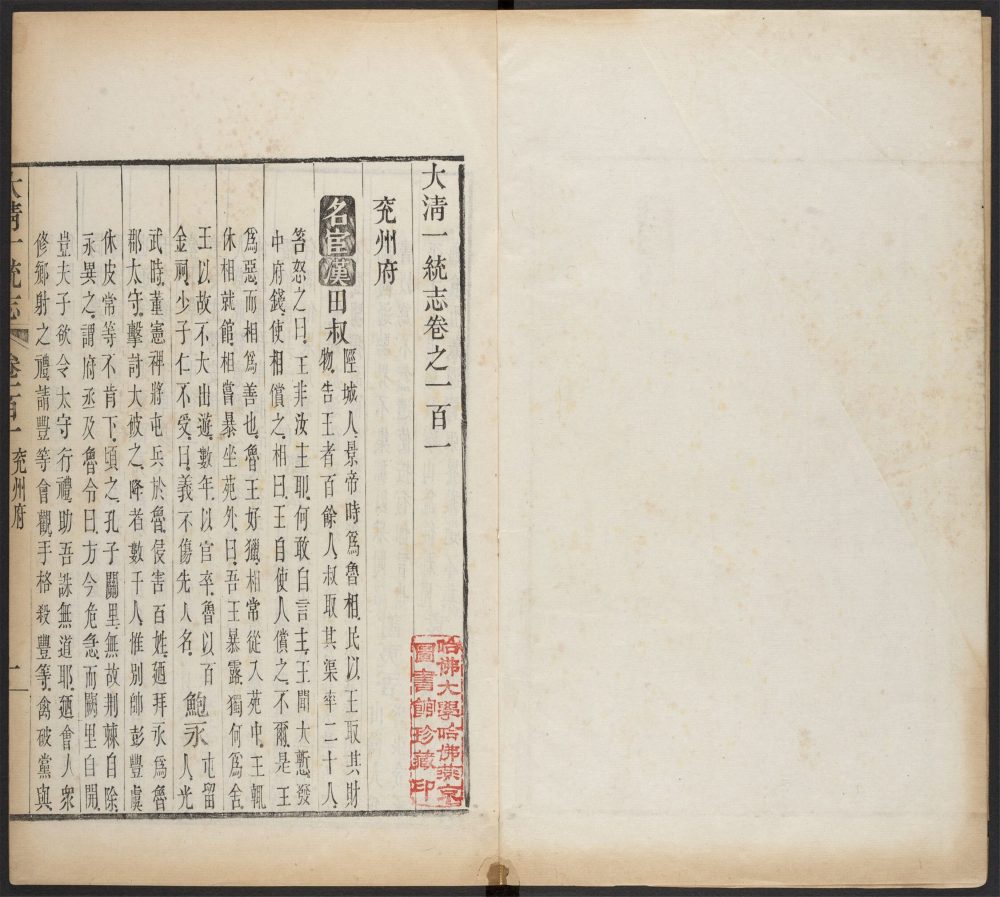 大淸一統志卷之一百一
兖州府
名宦漢田叔陘城人景帝時爲魯相民以王取其財
物告王者百餘人叔取其渠率二十人
笞怒之曰王非汝主耶何敢自言主王聞大慙發
中府錢使相償之相曰王自使人償之不爾是王
爲惡而相爲善也魯王好獵相常從入苑中王輒
休相就館相嘗暴坐苑外曰吾王暴露獨何爲舍
王以故不大出遊數年以官卒魯以百
金祠少子仁不受曰義不傷先人名 鮑永屯留人光
武時董憲裨將屯兵於魯侵害百姓廼拜永爲魯
郡太守擊討大破之降者數千人惟別帥彭豐虞
休皮常等不肯下頃之孔子闕里無故荆棘自除
永異之謂府丞及魯令曰方今危急而闕里自開
豈夫子欲令太守行禮助吾誅無道耶廼會人衆
修鄉射之禮請豐等會觀手格殺豐等禽破黨與
大淸一統志 卷一百一 兖州府 一
哈佛大學哈佛燕京
圖書館珍藏印